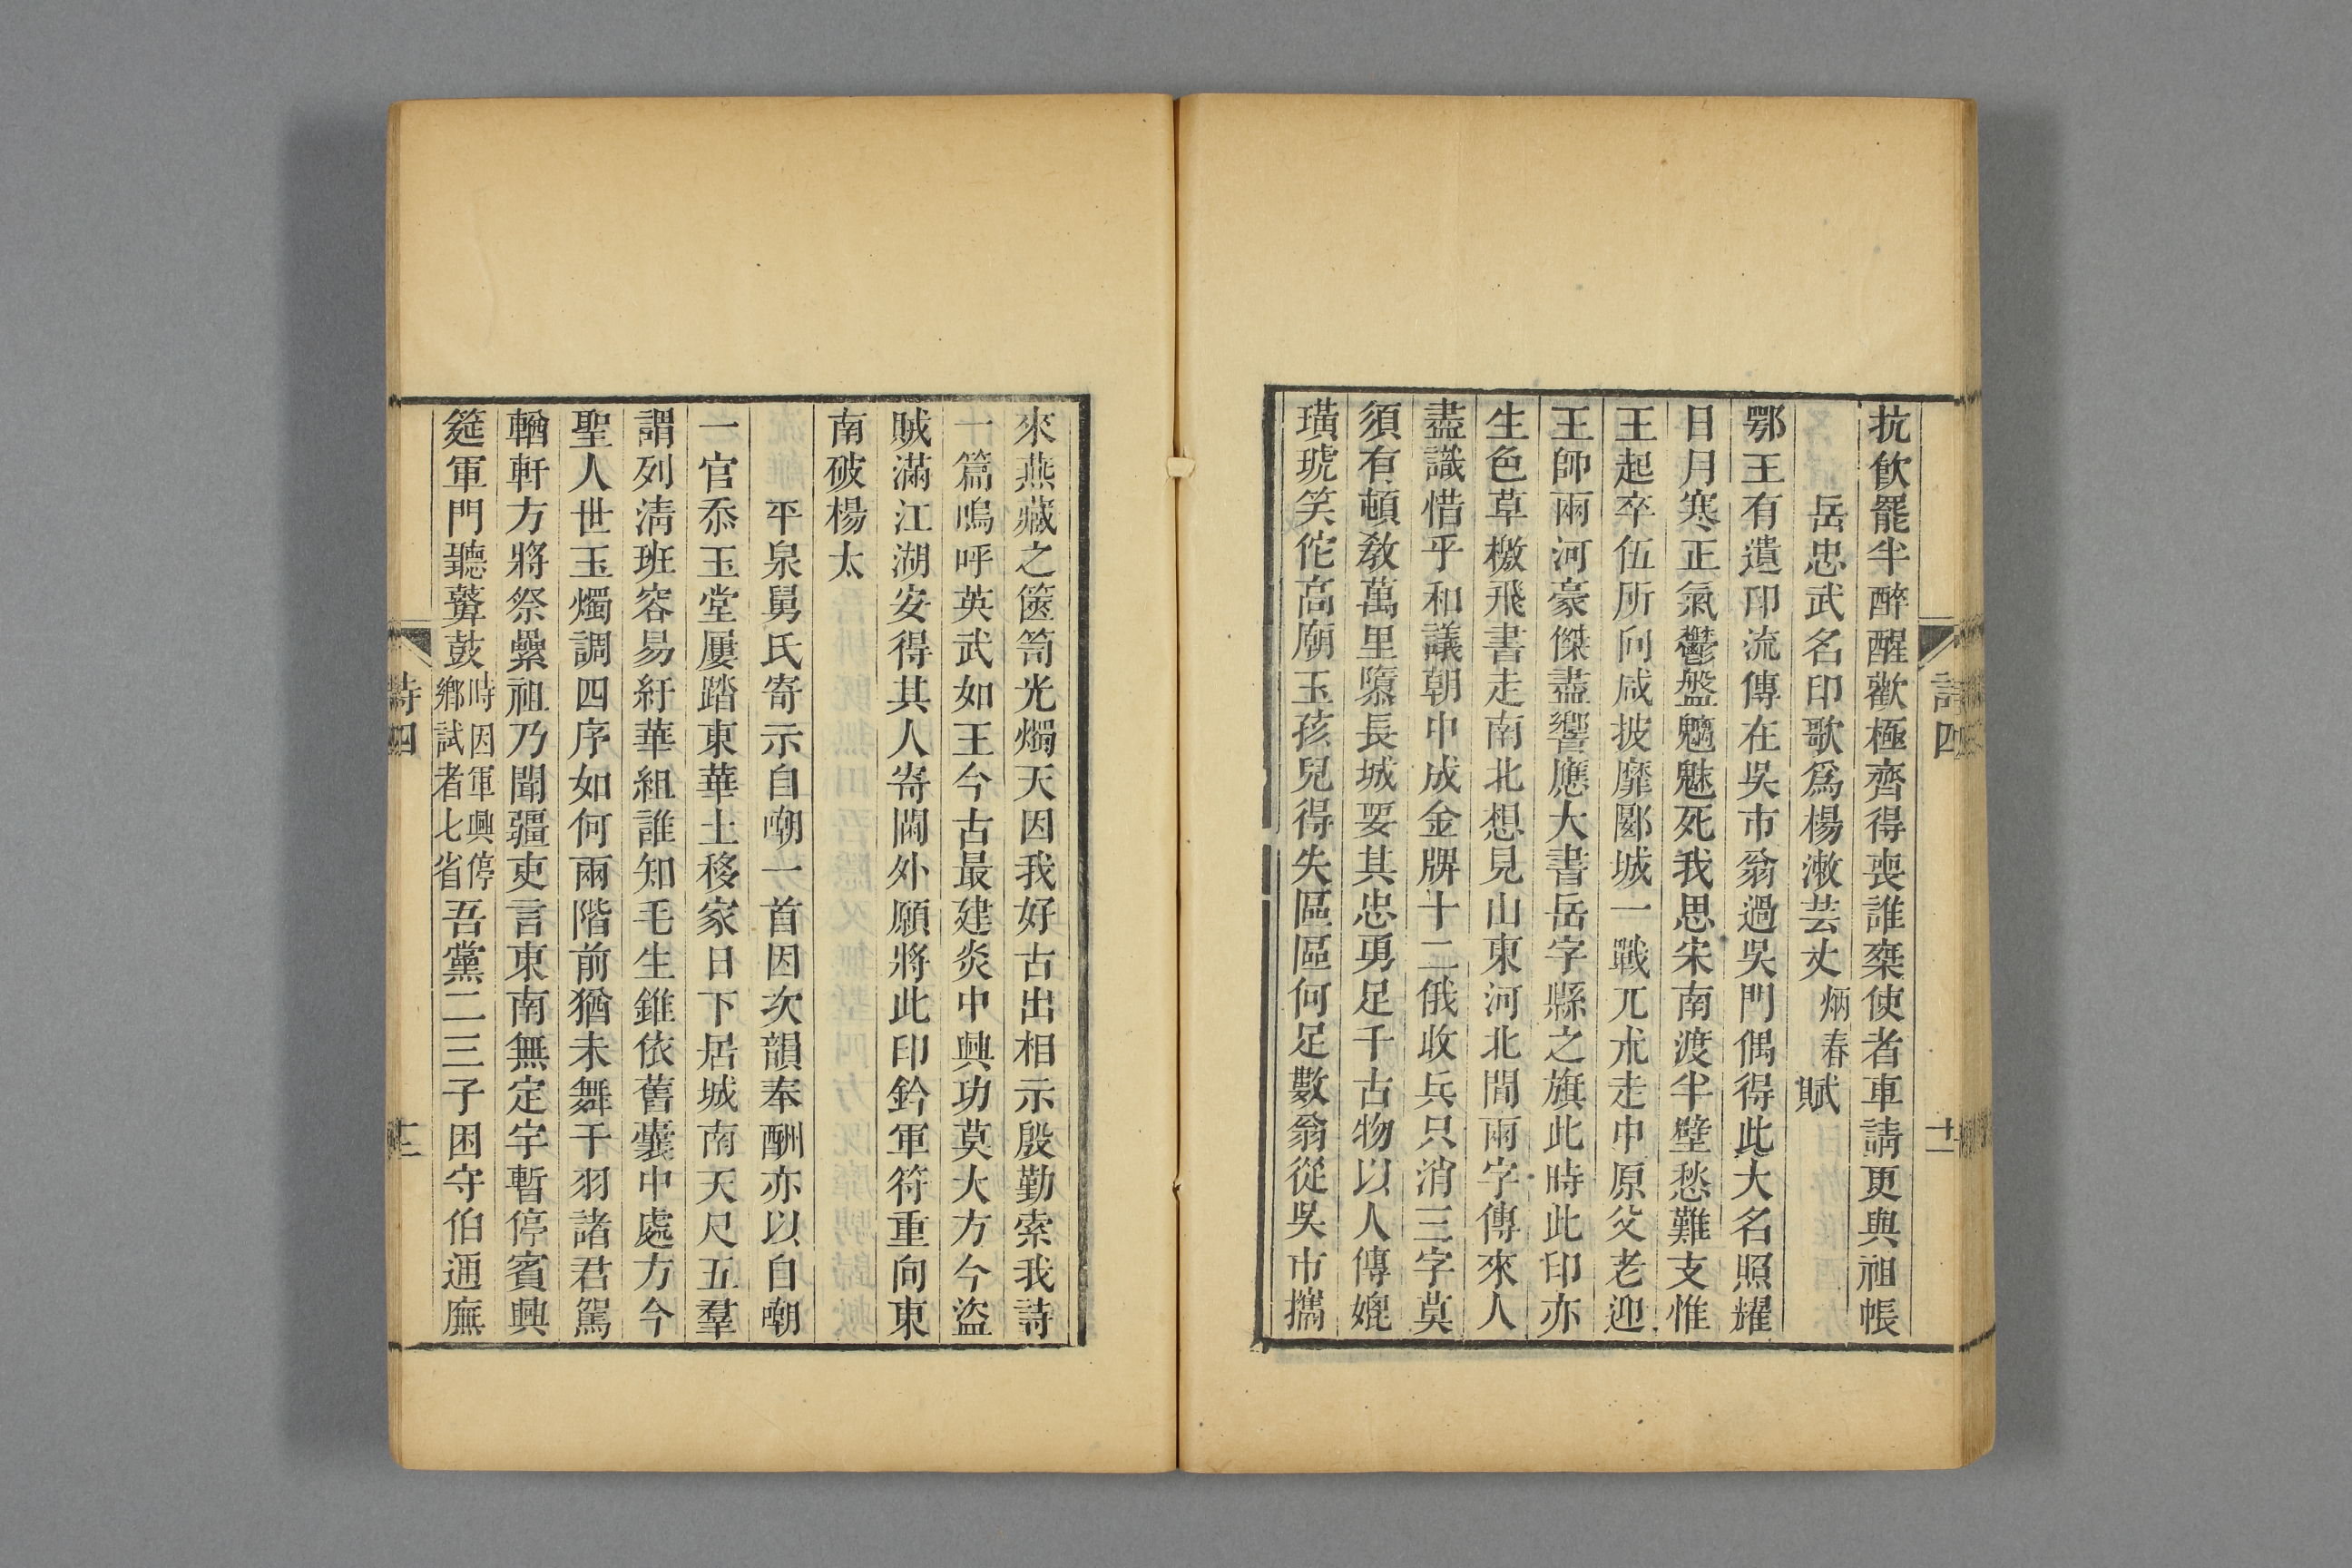 詩四
十一
抗飲罷半醉醒歡極齊得喪誰楽使者車請更與祖帳
岳忠武名印歌爲楊漱芸丈炳春賦
鄂王有遺印流傳在吳市翁過吳門偶得此大名照耀
日月寒正氣鬱盤魑魅死我思宋南渡半壁愁難支惟
王起卒伍所向咸披靡郾城一戰兀朮走中原父老迎
王師兩河豪傑盡響應大書岳字縣之旗此時此印亦
生色草檄飛書走南北想見山東河北間兩字傳來人
盡識惜乎和議朝中成金牌十二俄收兵只消三字莫
須有頓敎萬里隳長城要其忠勇足千古物以人傳媲
璜琥笑佗高廟玉孩兒得失區區何足數翁從吳市攜
來燕藏之篋笥光燭天因我好古出相示殷勤索我詩
一篇嗚呼英武如王今古最建炎中興功莫大方今盜
賊滿江湖安得其人寄閫外願將此印鈐軍符重向東
南破楊太
平泉舅氏寄示自嘲一首因次韻奉酬亦以自嘲
一官忝玉堂屢踏東華土移家日下居城南天尺五羣
謂列淸班容易紆華組誰知毛生錐依舊囊中處方今
聖人世玉燭調四序如何兩階前猶未舞干羽諸君駕
輶軒方將祭纍祖乃聞疆吏言東南無定宇暫停賓興
筵軍門聽鼙鼓時因軍興停鄉試者七省吾黨二三子困守伯通廡
詩四
十二